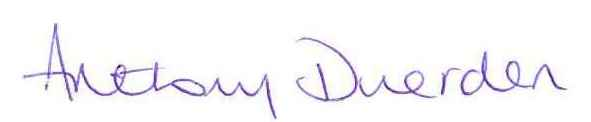 Anthony Duerden